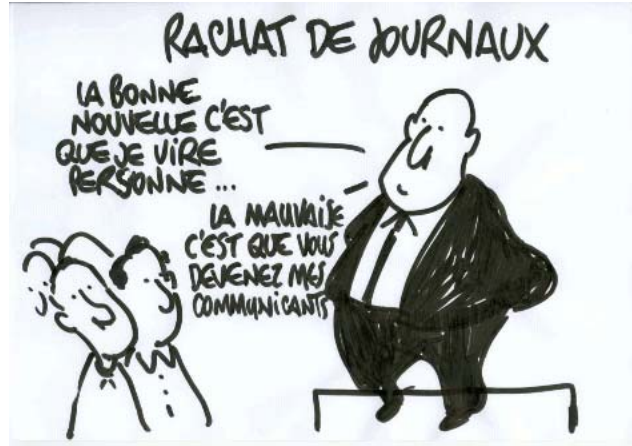 RACHAT DE JOURNAUX
LA BONNE
NOUVELLE C'EST
QUE JE VIRE
PERSONNE...
LA MAUVAISE
C'EST QUE VOUS
DEVENEZ MES
COMMUNICANTS